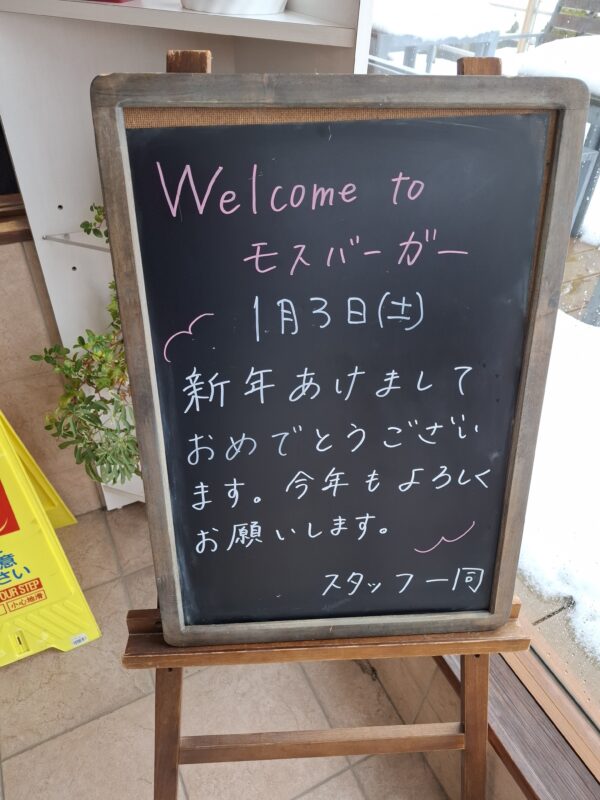 Welcome to
モスバーガー
1月3日(土)
新年あけまして
おめでとうござい
ます。今年もよろしく
お願いします。
スタッフ一同
意
さい
OUR STEP
小心地滑